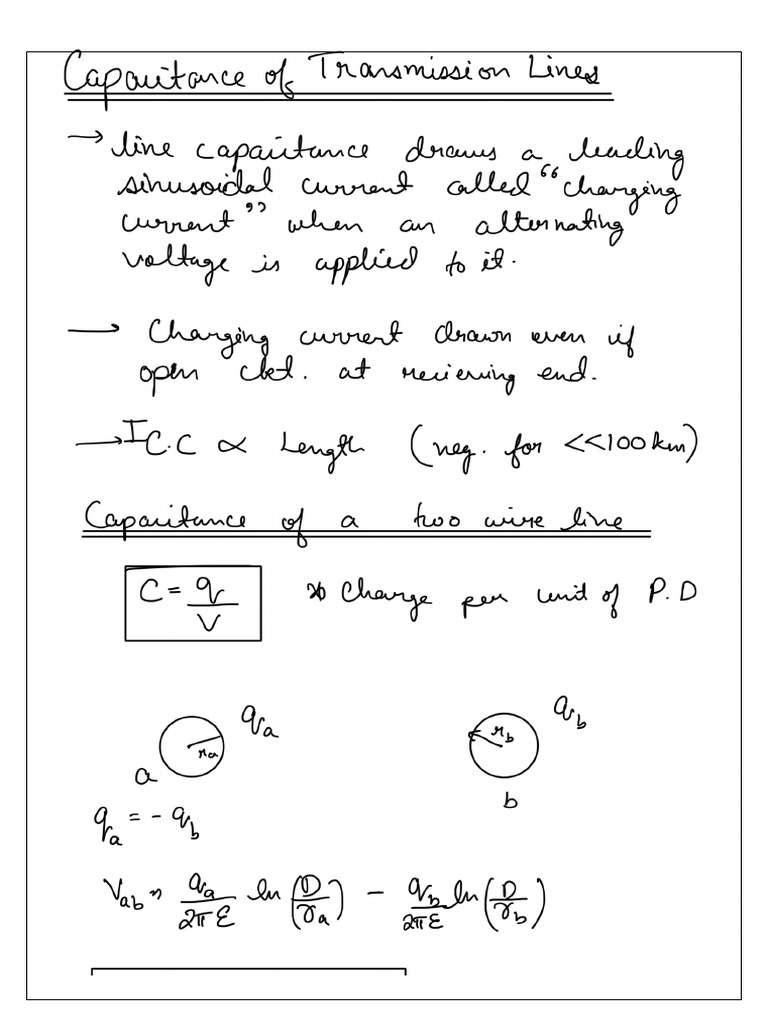 Capacitance of Transmission Lines
→ line capacitance draws a leading
sinusoidal current called "charging
current" when an alternating
voltage is applied to it.
→ Charging current drawn even if
open ckt. at recieving end.
→ I C.C ∝ Length (neg. for <<100km)
Capacitance of a two wire line
C = q/V ⇒ Charge per unit of P.D
qa qb
ra rb
a
b
qa = - qb
Vab = qa/2πε ln(D/ra) - qb/2πε ln(D/rb)